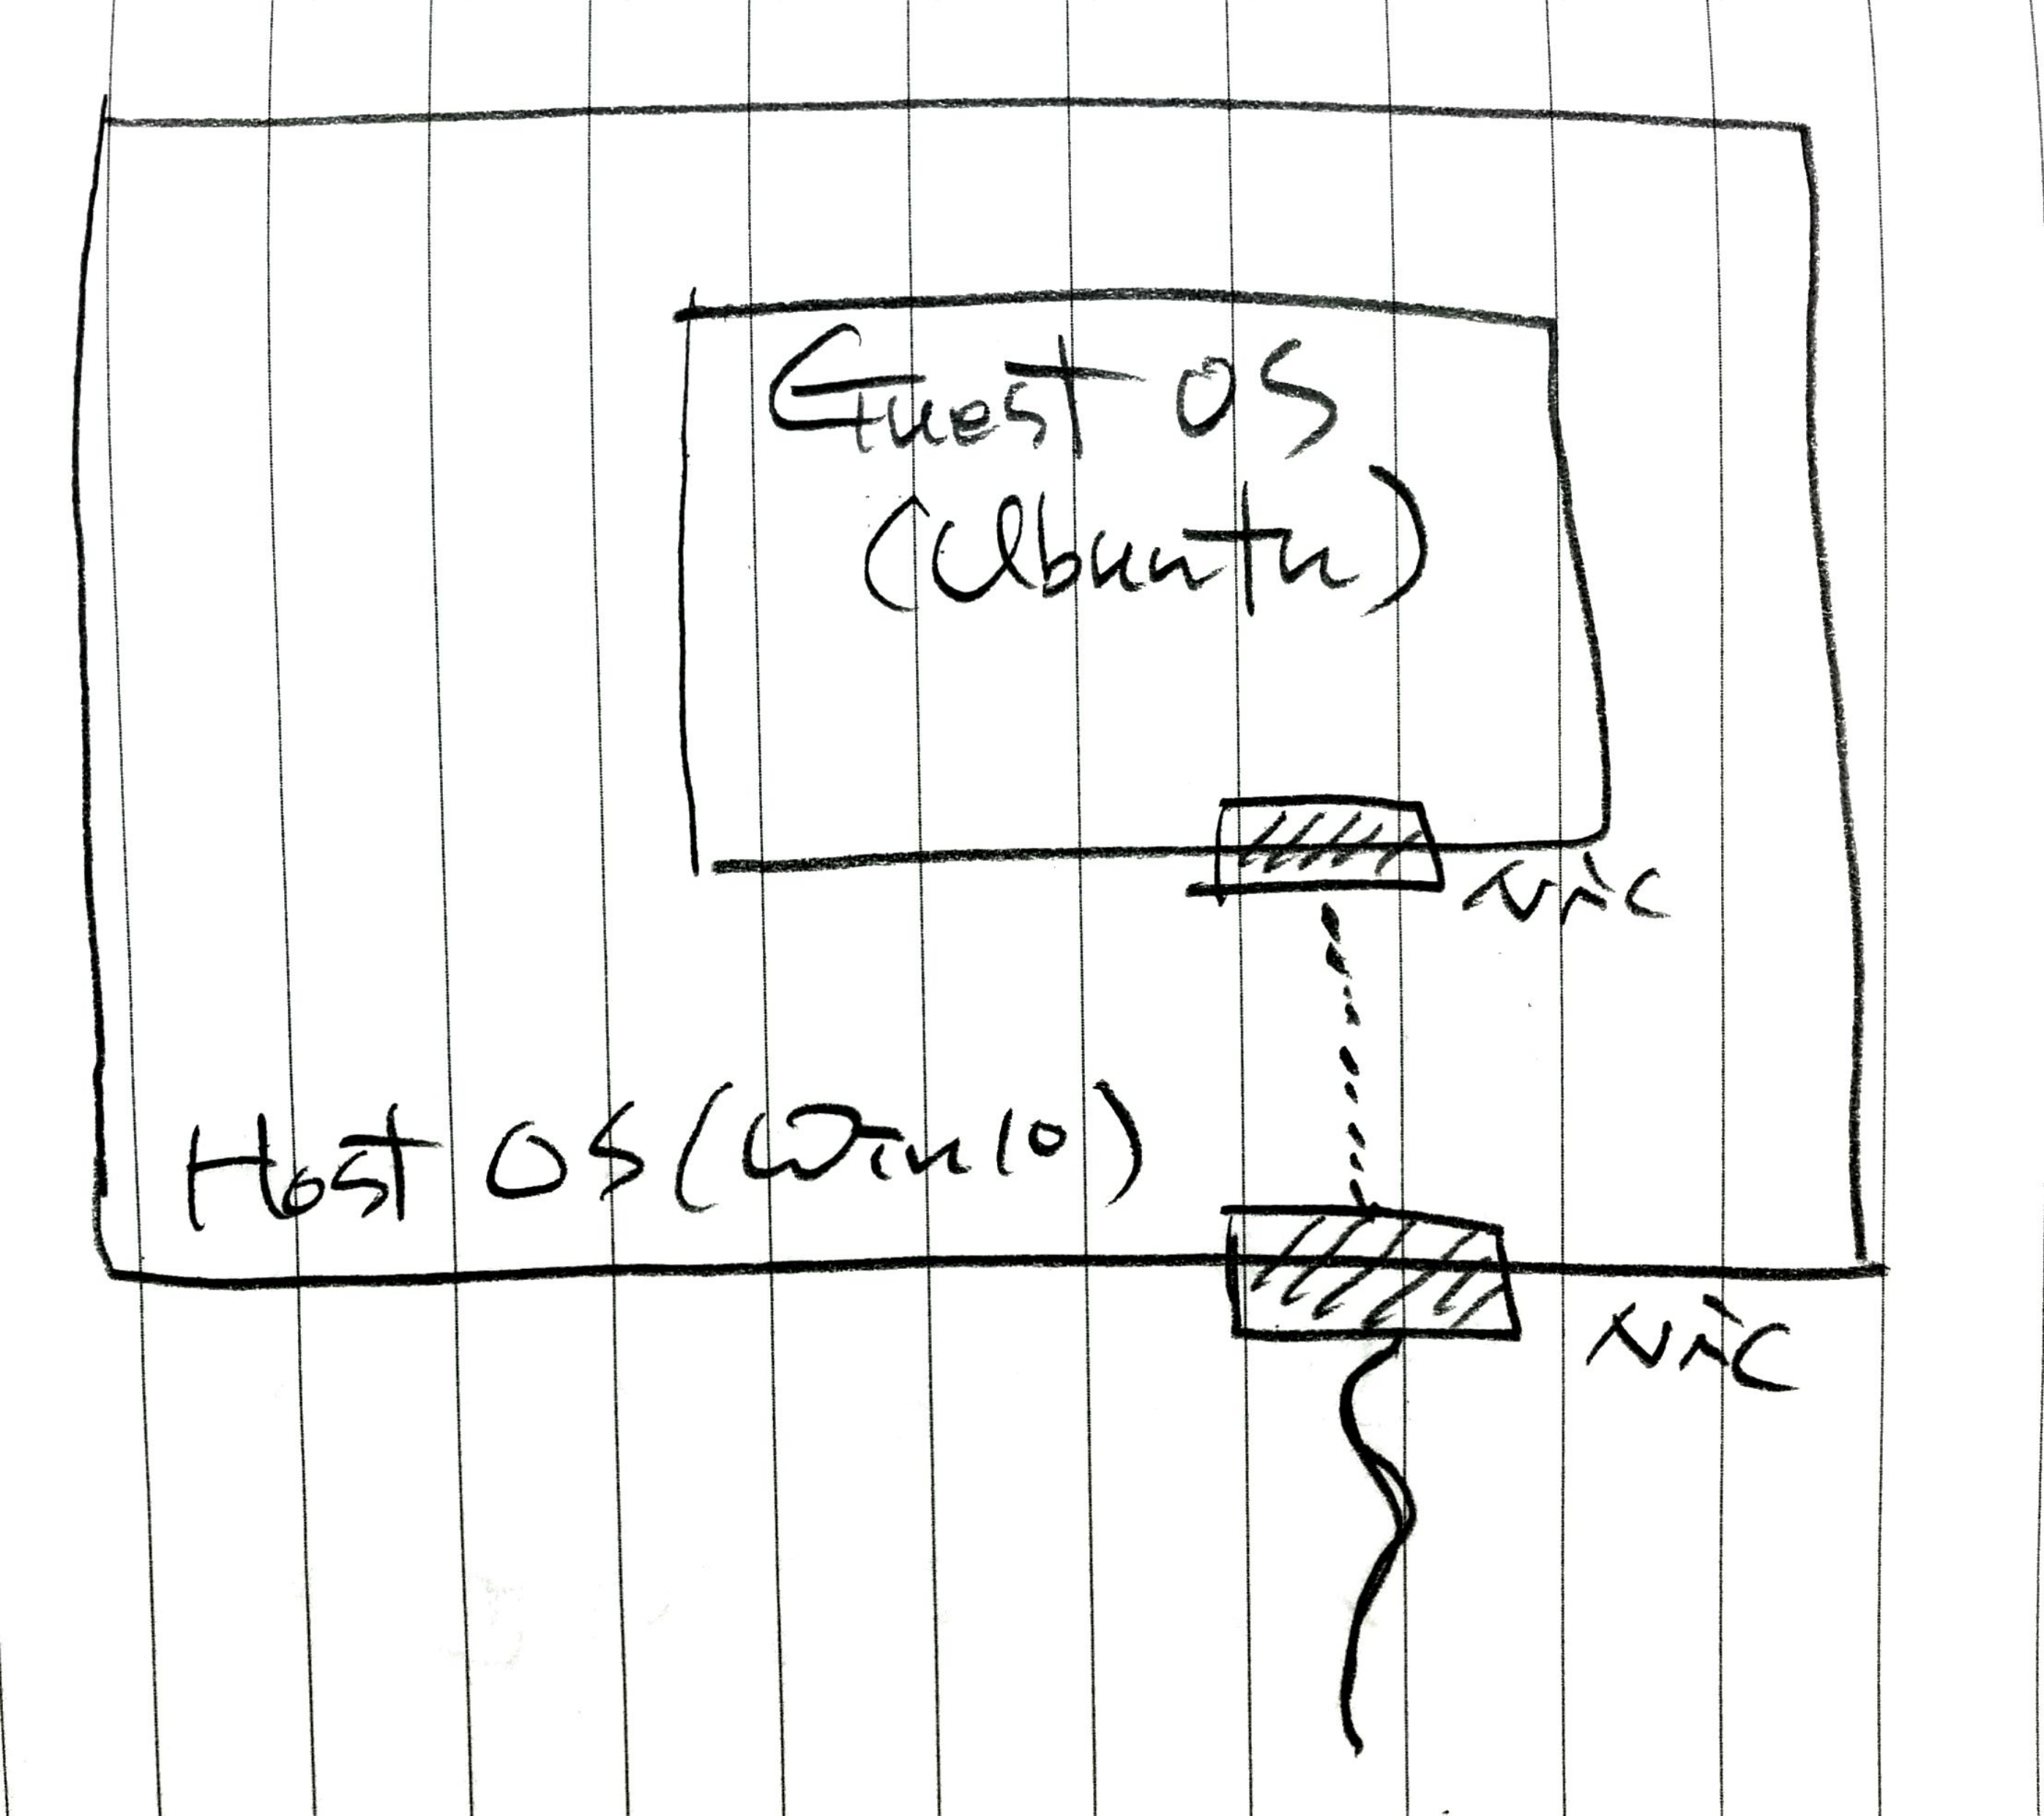 Guest OS
(Ubuntu)
NIC
Host OS (Win10)
NIC